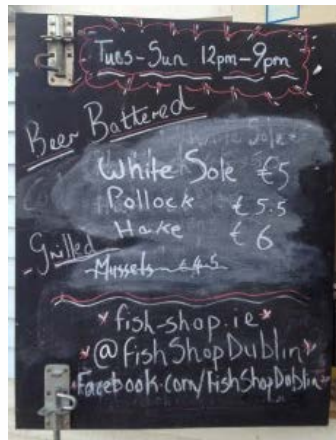 Tues-Sun 12pm-9pm
Beer Battered
White Sole €5
Pollock €5.5
Hake €6
Grilled
Mussels €4.5
fish-shop.ie
@fishShopDublin
Facebook.com/FishShopDublin